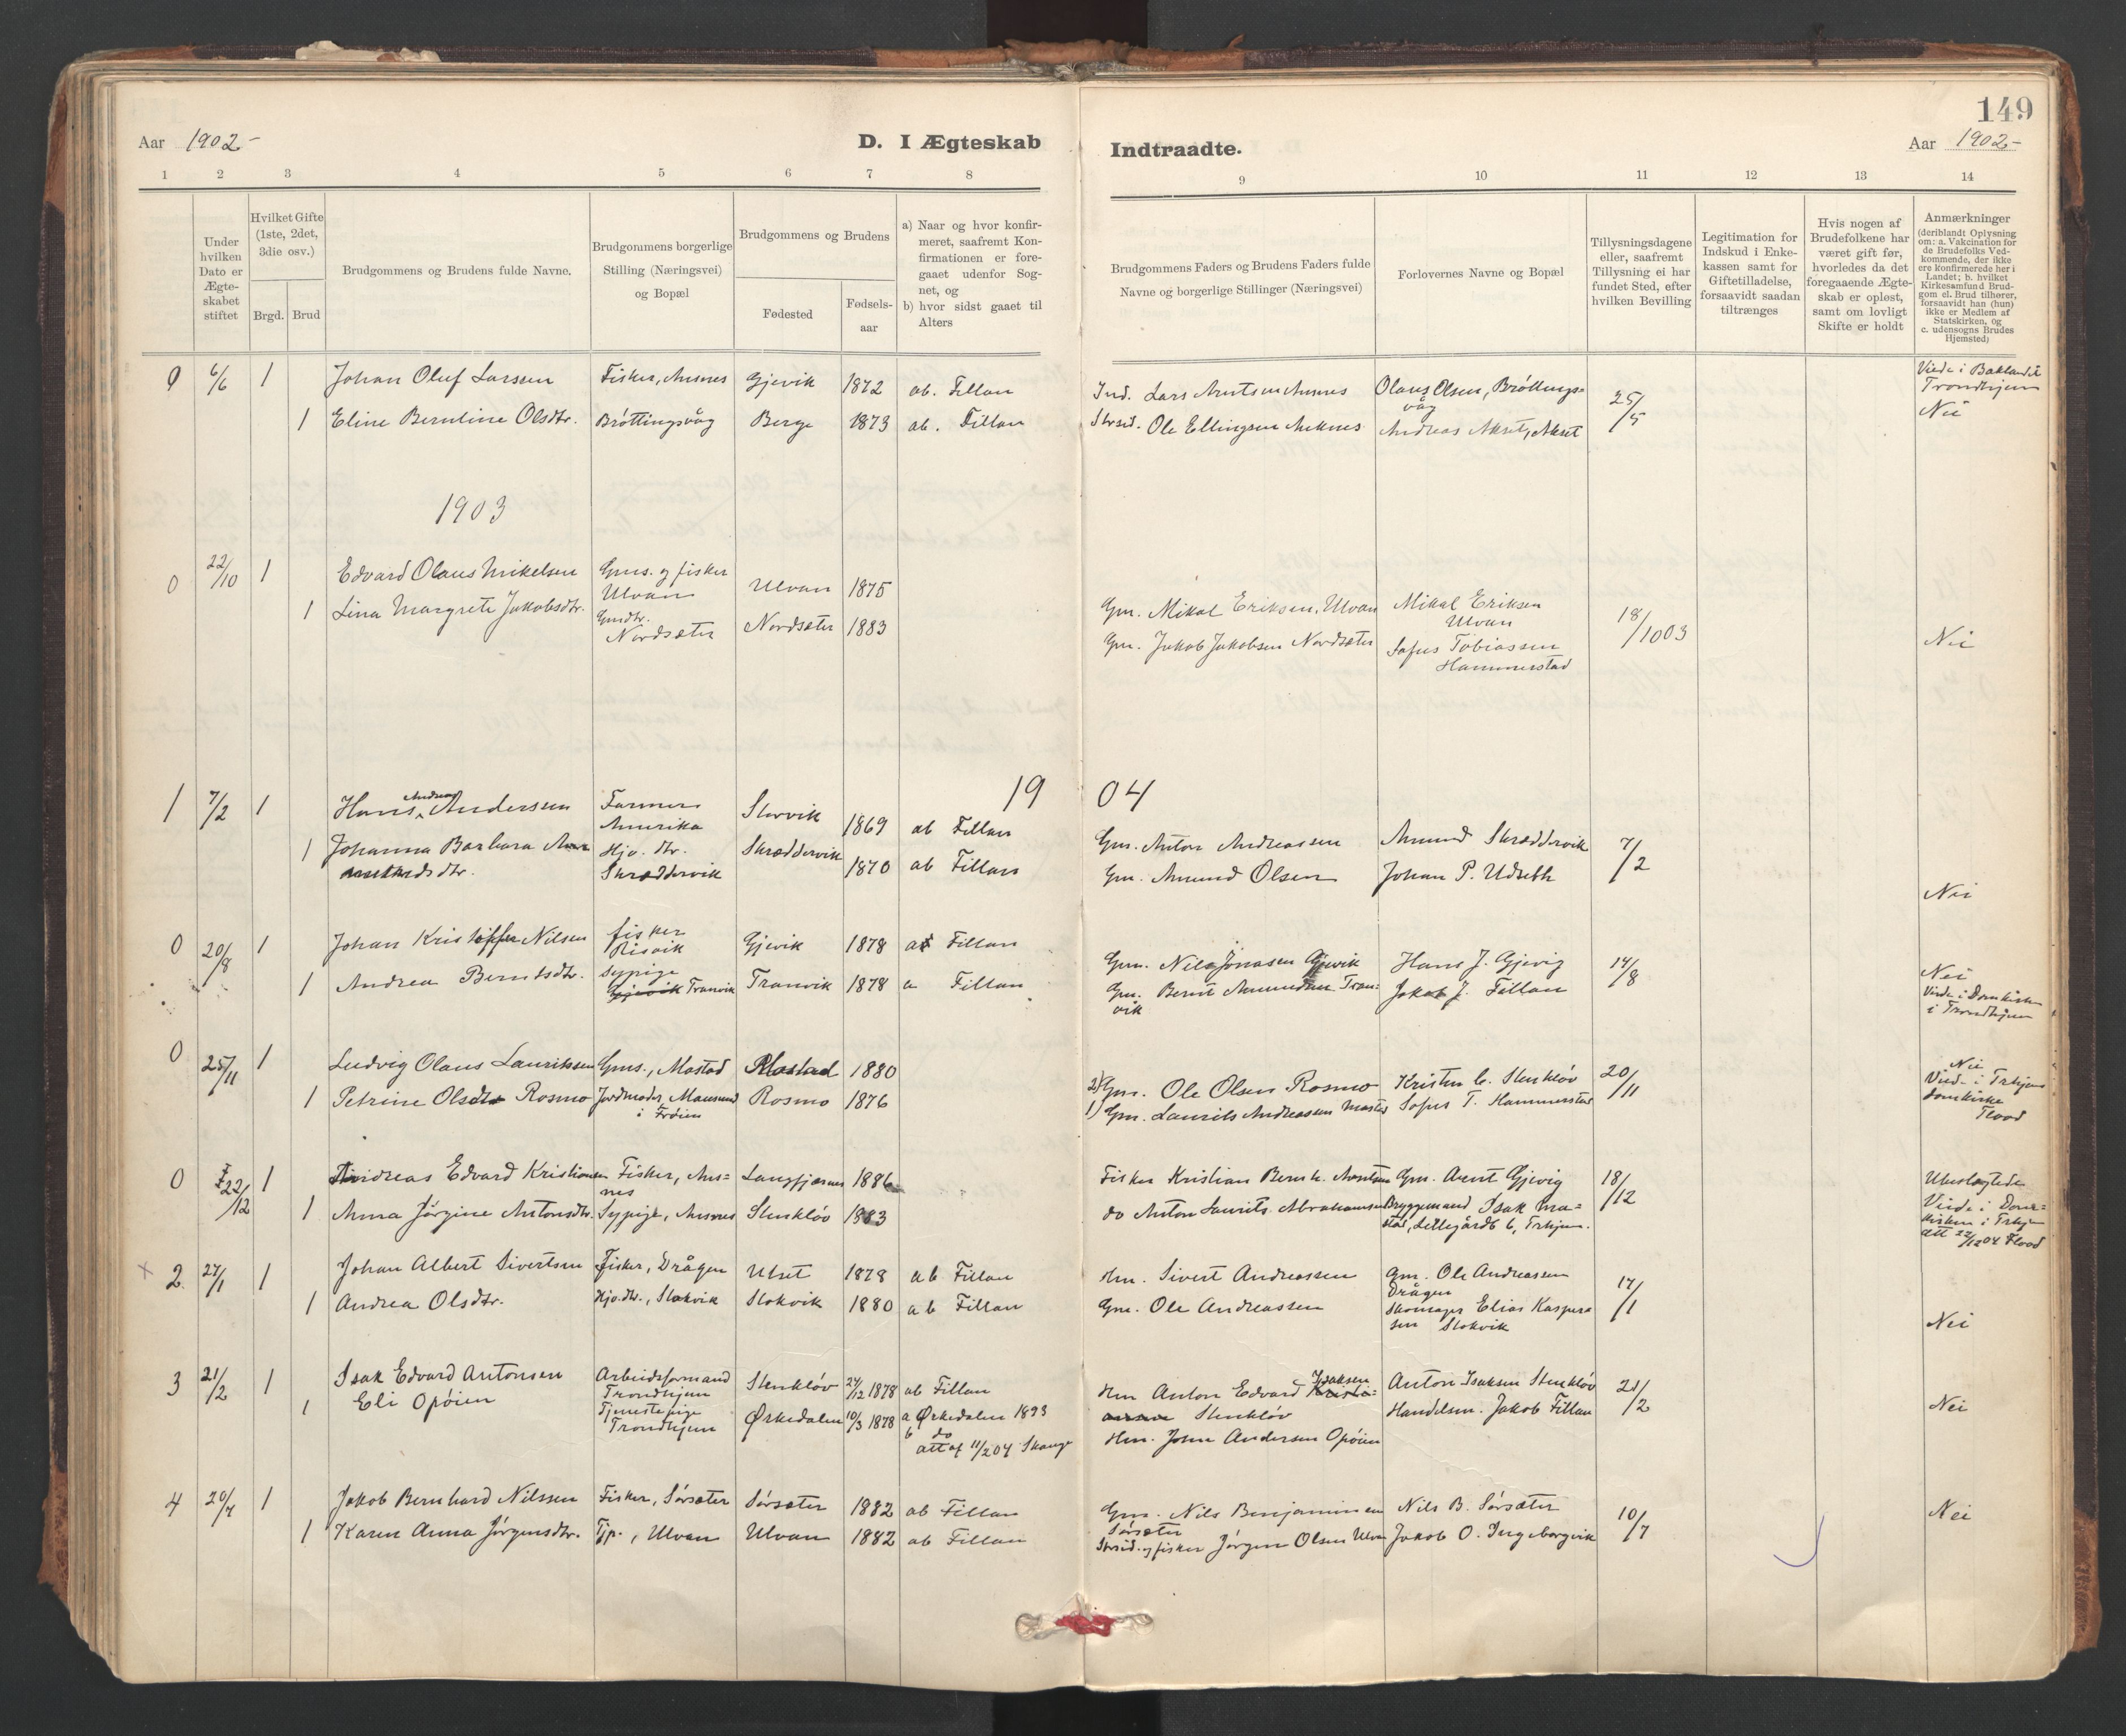 149
Aar 1902-
D. I Ægteskab
Indtraadte.
Aar 1902.-
1 2 3 4 5 6 7 8
9 10 11 12 13 14
Under hvilken Dato er Ægte-skabet stiftet
Hvilket Gifte (1ste, 2det, 3die osv.)
Brgd. Brud
Brudgommens og Brudens fulde Navne.
Brudgommens borgerlige Stilling (Næringsvei) og Bopæl
Brudgommens og Brudens
Fødested
Fødsels-aar
a) Naar og hvor konfir-meret, saafremt Kon-firmationen er fore-gaaet udenfor Sog-net, og
b) hvor sidst gaaet til Alters
Brudgommens Faders og Brudens Faders fulde Navne og borgerlige Stillinger (Næringsvei)
Forlovernes Navne og Bopæl
Tillysningsdagene eller, saafremt Tillysning ei har fundet Sted, efter hvilken Bevilling
Legitimation for Indskud i Enke-kassen samt for Giftetilladelse, forsaavidt saadan tiltrænges
Hvis nogen af Brudefolkene har været gift før, hvorledes da det foregaaende Ægte-skab er opløst, samt om lovligt Skifte er holdt
Anmærkninger (deriblandt Oplysning om: a. Vakcination for de Brudefolks Ved-kommende, der ikke ere konfirmerede her i Landet; b. hvilket Kirkesamfund Brud-gom el. Brud tilhører, forsaavidt han (hun) ikke er Medlem af Statskirken, og c. udensogns Brudes Hjemsted)
9 6/6 1 Johan Oluf Larssen Fisker, Ansnes Gjevik 1872 ab. Fillan Ind. Lars Arntsen Ansnes Olaus Olsen, Brøttings= våg 25/5 Viede i Baklandet Trondhjem
1 Eline Berntine Olsdtr. Brøttingsvåg Berge 1873 ab. Fillan Strsid. Ole Ellingsen Andreas Akset, Akset Nei
1903
0 22/10 1 Edvard Olaus Mikelsen Gms. og fisker Ulvan Ulvan 1875 Gm. Mikal Eriksen, Ulvan Mikal Eriksen Ulvan 18/10 03
1 Lina Margrete Jakobsdtr. Gmdtr. Nordsæter Nordsæter 1883 Gm. Jakob Jakobsen Nordsæter Sofus Tobiassen Hammerstad Nei
1904
1 7/2 1 Hans Andreas Andersen Farmer Amerika Storvik 1869 ab Fillan Gm. Anton Andreassen Amund Skræddervik 7/2
1 Johanna Barbara Am- undsdtr. Hjv. dtr. Skræddervik Skræddervik 1870 ab Fillan Gm. Amund Olsen Johan P. Udseth Nei
0 20/8 1 Johan Kristoffer Nilsen fisker Risvik Gjevik 1878 a Fillan Gm. Nils Jonasen Gjevik Hans J. Gjevig 14/8
1 Andrea Berntsdtr. sypige Gjevik Tranvik Tranvik 1878 a Fillan Gm. Bernt Amundsen Tran= vik Jakob J. Fillan Nei Viede i Domkirken i Trondhjem
0 25/11 1 Ludvig Olaus Lauritssen Gms., Mastad Mastad 1880 2) Gm. Ole Olsen Rosmo Kristen C. Stenkløv 20/11 Nei
1 Petrine Olsdtr Rosmo Jordmoder, Mausund i Frøien Rosmo 1876 1) Gm. Laurits Andreassen Mastad Sofus T. Hammerstad Viede i Trhjems Domkirke Flood
0 22/12 1 Andreas Edvard Kristiansen Fisker, Ans= nes Langfjærnes 1886 Fisker Kristian Bernh. Arntsen Gm. Arent Gjevig 18/12 Ubeslegtede
1 Anna Jørgine Antonsdtr. Sypige, Ansnes Stenkløv 1883 do Anton Laurits Abrahamsen Bryggemand Isak Ma= stad, Lillegårdsb 6, Trhjem. Viede i Dom= kirken i Trhjem att 22/12 04 Flood
x 2 27/1 1 Johan Albert Sivertsen Fisker, Drågen Utset 1878 ab Fillan Hm. Sivert Andreassen Gm. Ole Andreassen Drågen 17/1
1 Andrea Olsdtr. Hjv. dtr., Stokvik Stokvik 1880 ab Fillan Gm. Ole Andreassen Skomager Elias Kaspers sen Stokvik Nei
3 21/2 1 Isak Edvard Antonsen Arbeidsformand Trondhjem Stenkløv 24/12 1878 ab Fillan Hm Anton Edvard Isaksen Stenkløv Anton Isaksen Stenkløv 21/2
1 Eli Opøien Tjenestepige Trondhjem Ørkedalen 10/3 1878 a Ørkedalen 1893 b do att af 11/2 04 Skauge Hm. John Andersen Opøien Handelsm. Jakob Fillan Nei
4 20/7 1 Jakob Bernhard Nilssen Fisker, Sørsæter Sørsæter 1882 ab Fillan Gm. Nils Benjaminsen Sørsæter Nils B. Sørsæter 10/7 Nei
1 Karen Anna Jørgensdtr. Tjp., Ulvan Ulvan 1882 ab Fillan Strsid. og fisker Jørgen Olsen Ulvan Jakob O. Ingeborgvik